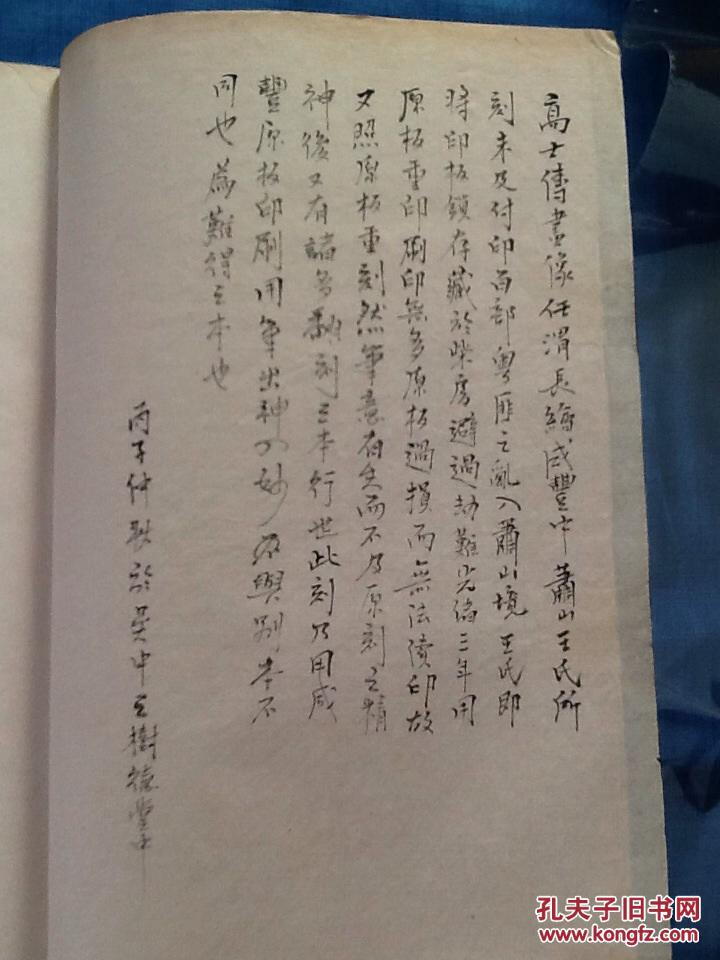 高士傳畫像任渭長繪咸豐中蕭山王氏所
刻未及付印百部粵匪之亂入蕭山境王氏即
將印板鎖存藏於柴房避過劫難光緒三年用
原板重印刷印無多原板過損而無法續印故
又照原板重刻然筆意有失而不及原刻之精
神後又有諸多翻刻之本行世此刻乃用咸
豐原板印刷用筆出神入妙故與別本不
同也為難得之本也
丙子仲秋於吳中之樹德堂中
孔夫子旧书网
www.kongfz.com